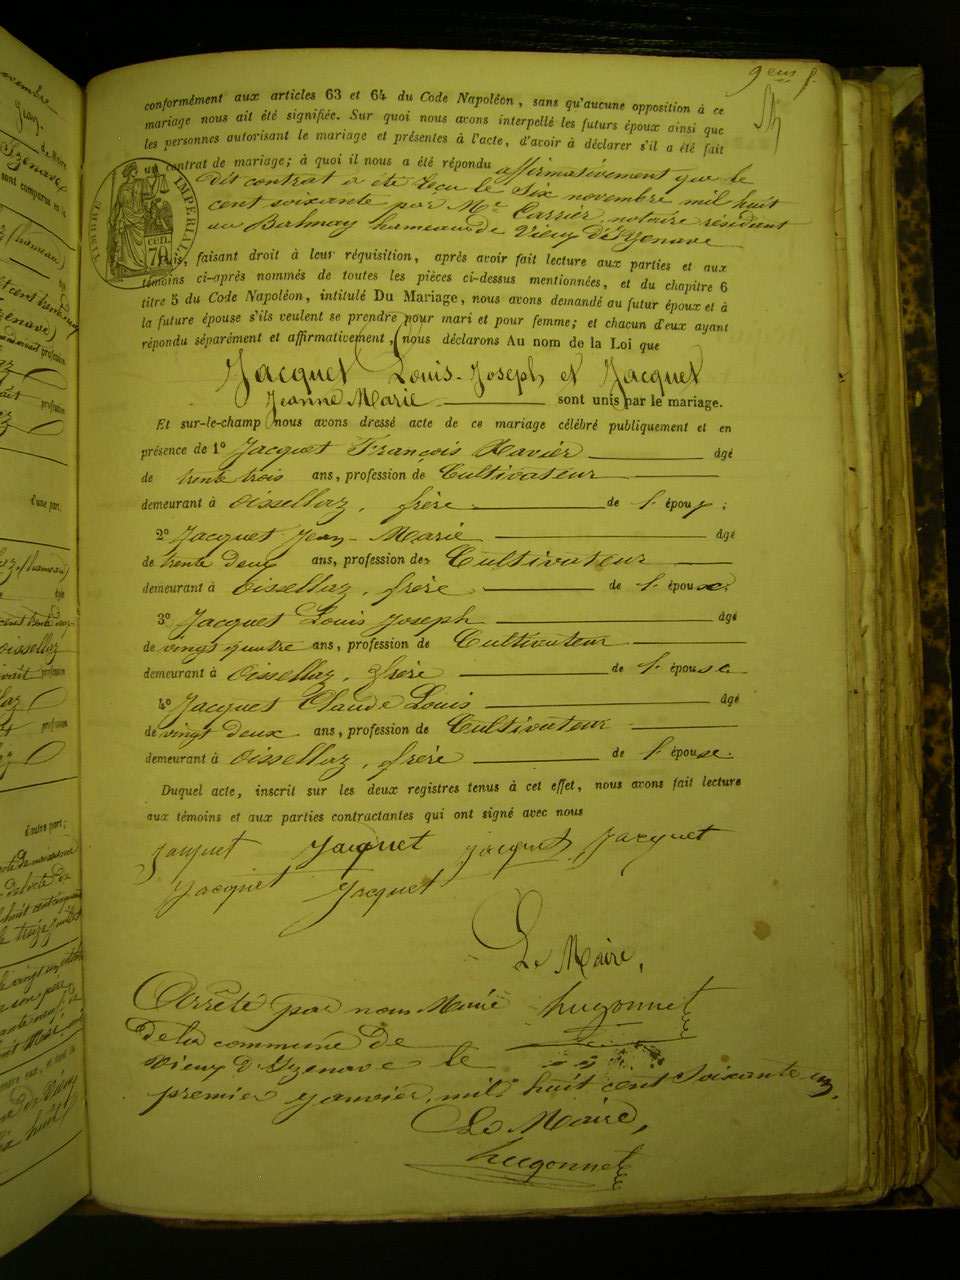 9eme f.
conformément aux articles 63 et 64 du Code Napoléon, sans qu'aucune opposition à ce
mariage nous ait été signifiée. Sur quoi nous avons interpellé les futurs époux ainsi que
les personnes autorisant le mariage et présentes à l'acte, d'avoir à déclarer s'il a été fait
un contrat de mariage; à quoi il nous a été répondu affirmativement que le
dit contrat a été reçu le Six novembre mil huit
cent soixante par Me Carrier, notaire résident
au Balmay hameau de Vieux d'Izenave
TIMBRE IMPERIAL
cen. 70
Puis, faisant droit à leur réquisition, après avoir fait lecture aux parties et aux
témoins ci-après nommés de toutes les pièces ci-dessus mentionnées, et du chapitre 6
titre 5 du Code Napoléon, intitulé Du Mariage, nous avons demandé au futur époux et à
la future épouse s'ils veulent se prendre pour mari et pour femme; et chacun d'eux ayant
répondu séparément et affirmativement, nous déclarons Au nom de la Loi que
Jacquet Louis-Joseph et Jacquet
Jeanne Marie sont unis par le mariage.
Et sur-le-champ nous avons dressé acte de ce mariage célébré publiquement et en
présence de 1º Jacquet François Xavier âgé
de trente trois ans, profession de Cultivateur
demeurant à Oissellaz, frère de l'époux;
2º Jacquet Jean-Marie âgé
de trente deux ans, profession de Cultivateur
demeurant à Oissellaz, frère de l'épouse
3º Jacquet Louis Joseph âgé
de vingt quatre ans, profession de Cultivateur
demeurant à Oissellaz, frère de l'épouse
4º Jacquet Claude Louis âgé
de vingt deux ans, profession de Cultivateur
demeurant à Oissellaz, frère de l'épouse.
Duquel acte, inscrit sur les deux registres tenus à cet effet, nous avons fait lecture
aux témoins et aux parties contractantes qui ont signé avec nous
Jacquet Jacquet Jacquet Jacquet
Jacquet Jacquet
Le Maire,
Arrêté par nous Maire hugonnet
de la commune de
Vieux d'Izenave le
premier janvier, mil huit cent soixante un.
Le Maire,
hugonnet